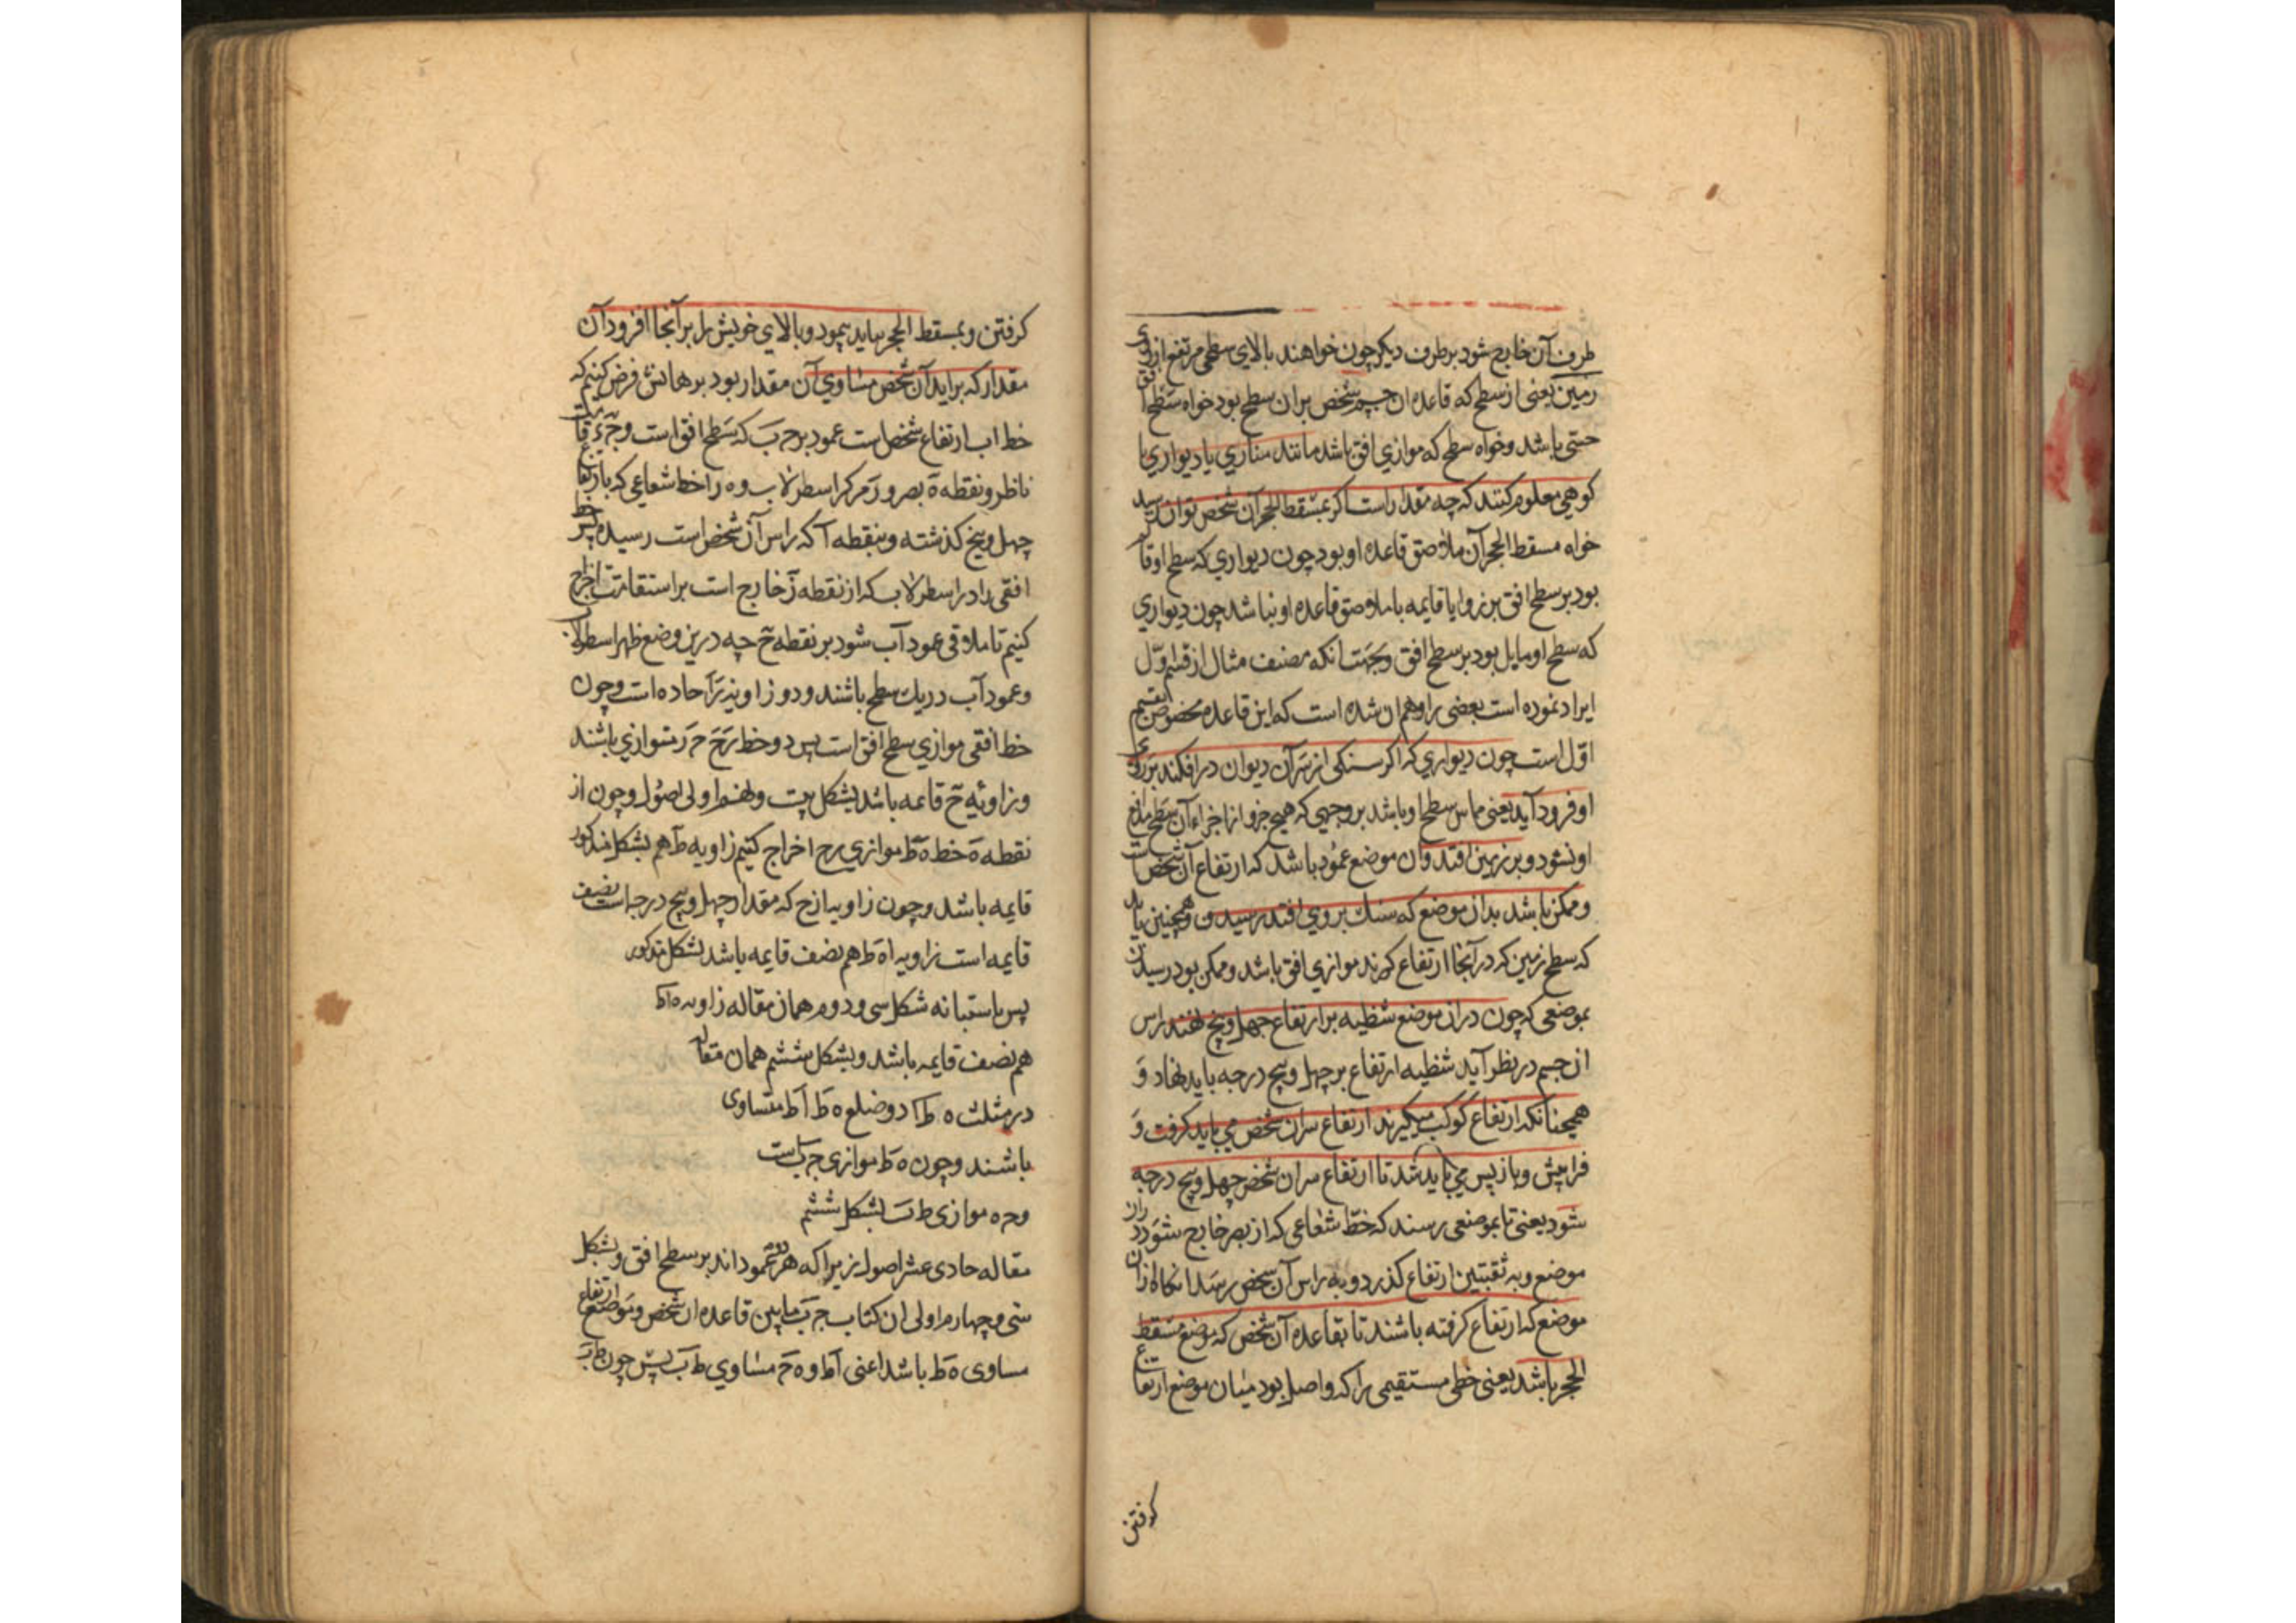 طرف آن خارج شود بر طرف دیکر چون خواهند بالای سطحی مرتفع از روی
زمین یعنی از سطح که قاعده ان جسم شخص بران سطح بود خواه سطح افق
حسّی باشد و خواه سطح که موازی افق باشد مانند مناری یا دیواری یا
کوهی معلوم کنند که چه مقدار است اکر بمسقط الحجر آن شخص توان رسید
خواه مسقط الحجر آن ملاصق قاعده او بود چون دیواری که سطح او
بود بر سطح افق بر زوایا قایمه یا ملاصق قاعده او نباشد چون دیواری
که سطح او مایل بود بر سطح افق و بجهت انکه مصنف مثال از قسم اوّل
ایراد نموده است بعضی را وهم ان شده است که این قاعده مخصوص بقسم
اوّل است چون دیواری که اکر سنکی از سر آن دیوان درافکند بر روی
او فرود آید یعنی مماس سطح او باشد بر وجهی که هیچ جزو از اجزاء آن سطح مانع
او نشود و بر زمین افتد و ان موضع عمود باشد که ارتفاع آن شخص است
و ممکن باشد بدان موضع که سنك بر وی افتد رسیدن و همچنین باید
که سطح زمین که در آنجا ارتفاع کیرند موازی افق باشد و ممکن بود رسیدن
بموضعی که چون در ان موضع شظیه بر ارتفاع چهل و پنج نهند راس
ان جسم در نظر آید شظیه ارتفاع بر چهل و پنج درجه باید نهاد و
همچنانکه ارتفاع کوکب میکیرند ارتفاع سر ان شخص می باید کرفت و
فراپیش و باز پس می باید شد تا ارتفاع سر ان شخص چهل و پنج درجه
شود یعنی تا بموضعی رسند که خطّ شعاعی که از بصر خارج شود در ان
موضع و به ثقبتین ارتفاع کذرد و به راس آن شخص رسد انکاه از ان
موضع که ارتفاع کرفته باشند تا بقاعده آن شخص که موضع مسقط
الحجر باشد یعنی خطی مستقیمی را که واصل بود میان موضع ارتفاع
کرفتن
کرفتن و بمسقط الحجر بباید پیمود و بالای خویش را بر آنجا افزود آن
مقدار که براید آن شخص مساوی آن مقدار بود برهانش فرض کنیم که
خط اب ارتفاع شخص است عمود بر ج ب که سطح افق است و ج ه قامت
ناظر و نقطه ه بصر و ر مرکز اسطرلاب و ه ر ا خط شعاعی که بارتفاع
چهل و پنج کذشته و بنقطه آ که راس آن شخص است رسیده پس خط
افقی را در اسطرلاب که از نقطه ز خارج است بر استقامت اخراج
کنیم تا ملاقی عمود آب شود بر نقطه ح چه درین وضع ظهر اسطرلاب
و عمود آب در یك سطح باشند و دو زاویه حاده است و چون
خط افقی موازی سطح افق است پس دو خط متوازی باشند
و زاویه ح قایمه باشد بشکل بیست و نهم اولی اصول و چون از
نقطه ه خط ه ط موازی رح اخراج کنیم زاویه ط هم بشکل مذکور
قایمه باشد و چون زاویه ازح که مقدار چهل و پنج درجه است نصف
قایمه است زاویه اه ط هم نصف قایمه باشد بشکل مذکور
پس باستبانه شکل سی و دوم همان مقاله زاویه ه اط
هم نصف قایمه باشد و بشکل ششم همان مقاله
در مثلث ه ط ا دو ضلع ه ط اط متساوی
باشند و چون ه ط موازی ج ب است
و ج ه موازی ط ب بشکل ششم
مقاله حادی عشر اصول زیرا که هر دو عمود اند بر سطح افق و بشکل
سی و چهارم اولی ان کتاب ج ب مابین قاعده ان شخص و موضع ارتفاع
مساوی ه ط باشد اعنی اط و ه ج مساوی ط ب پس چون ط ب